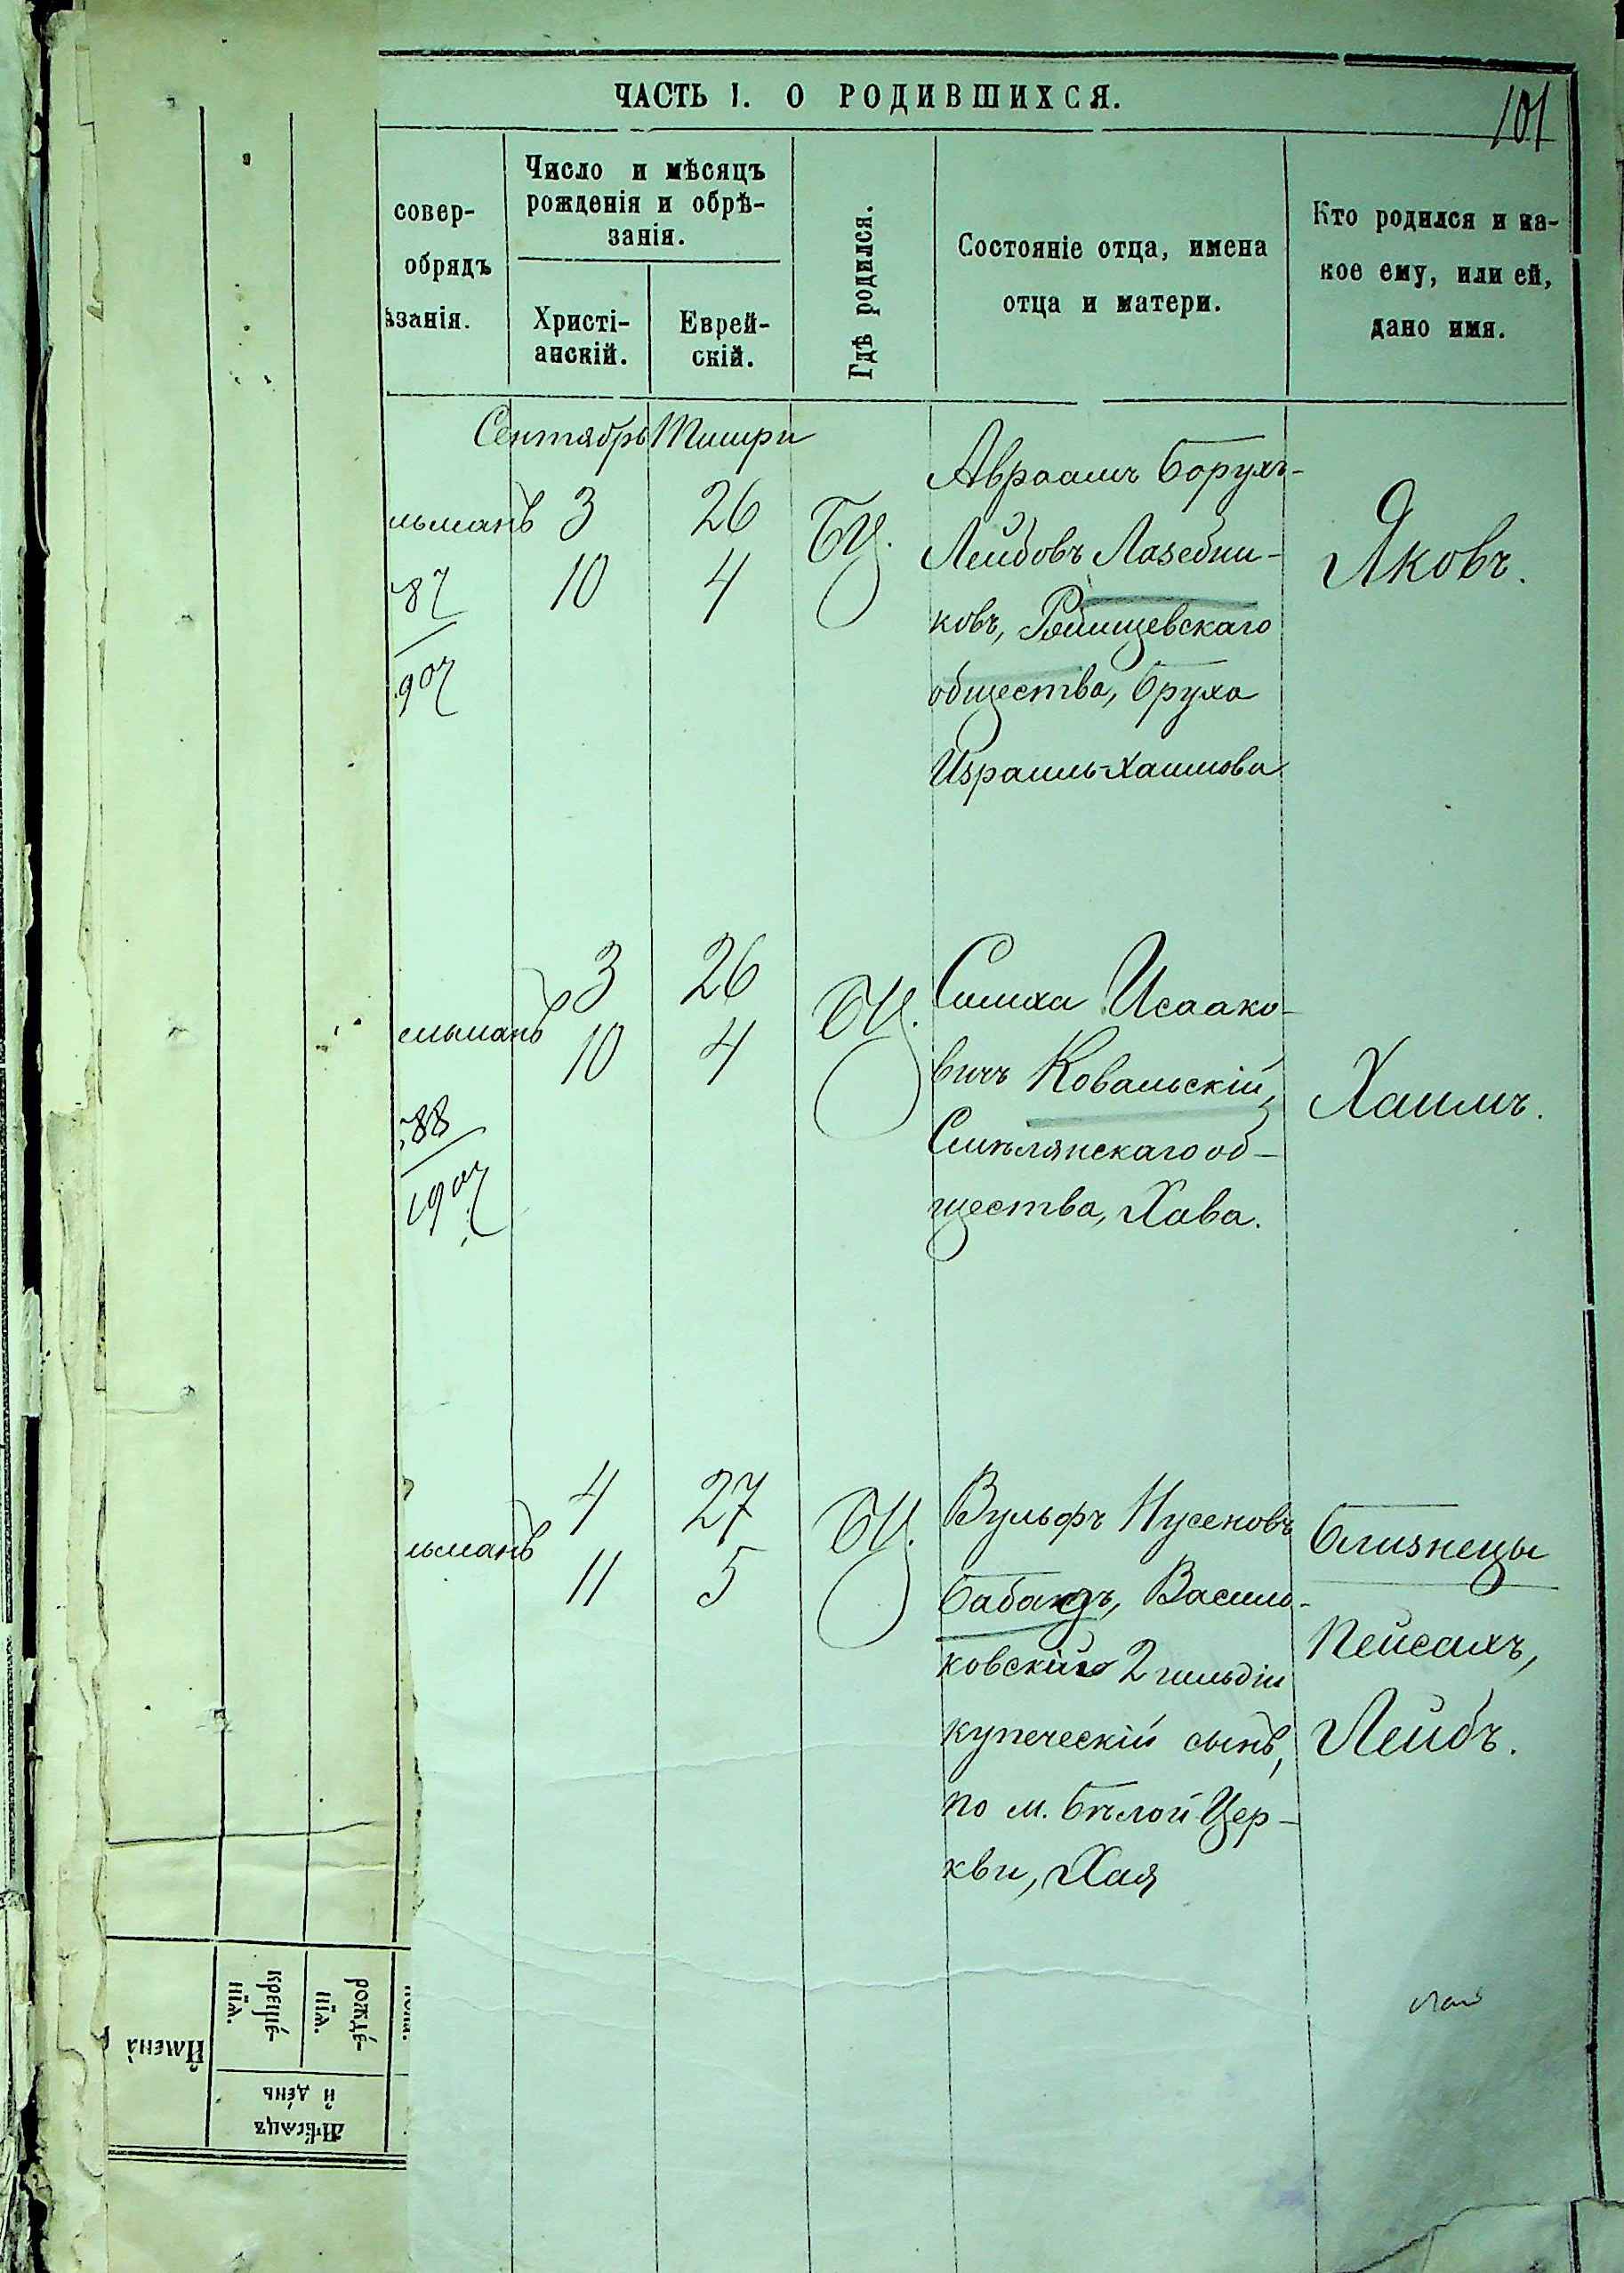 ЧАСТЬ I. О РОДИВШИХСЯ.
101
совер-
обрядъ
ѣзанія.
Число и мѣсяцъ
рожденія и обрѣ-
занія.
Христі-
анскій.
Еврей-
скій.
Гдѣ родился.
Состояніе отца, имена
отца и матери.
Кто родился и ка-
кое ему, или ей,
дано имя.
Сентябрь Тишри
льманъ 3 26 БЦ. Авраамъ Борухъ-
10 4 Лейбовъ Лазебни-
ковъ,
общества, Бруха
Израиль-Хаимова
Яковъ.
87
907
ельманъ 3 26 БЦ. Симха Исаако-
10 4 вичъ Ковальскій,
Смѣлянскаго об-
щества, Хава.
Хаимъ.
788
1907
льманъ 4 27 БЦ. Вульфъ Нусеновъ
11 5 Бабадъ, Василь-
ковскій 2 гильдіи
купеческій сынъ,
по м. Бѣлой Цер-
кви, Хая
Близнецы
Пейсахъ,
Лейбъ.
Имена
креще́-
нїѧ.
рожде́-
нїѧ.
Мѣсѧцъ
и день